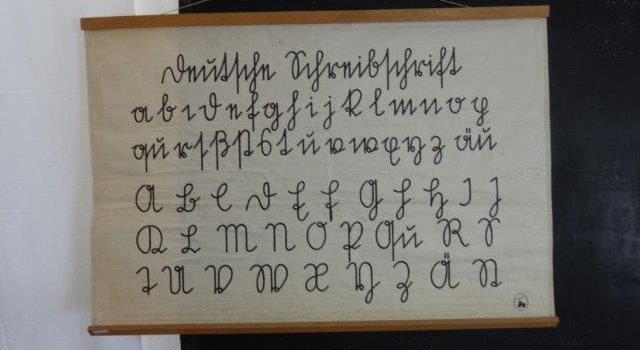 Deutsche Schreibschrift
a b c d e f g h i j k l m n o p
qu r ſ ß ſt s t u v w x y z äu
A B C D E F G H I J
K L M N O P Qu R S
T U V W X Y Z Ä